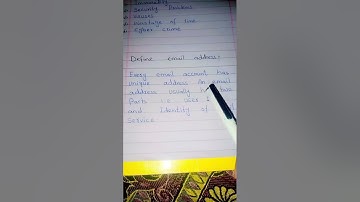 Immorality
Security Problem
viruses
wastage of time
cyber crime
Define email address:
Every email account has
unique address An email
address usually h two
Parts i.e user &
and Identity of
Service